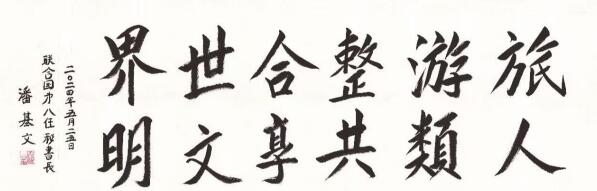 旅游整合世界
人類共享文明
二〇二四年五月二五日
联合国第八任秘書長
潘基文